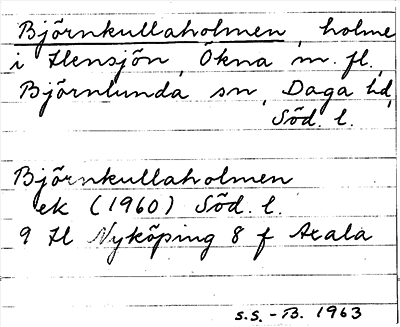 Björnkullaholmen, holme
i Hensjön, Ökna m. fl.,
Björnlunda sn, Daga hd,
Söd. l.
Björnkullaholmen
ek (1960) Söd. l.
9 H Nyköping 8 f Axala
S.S. - B. 1963